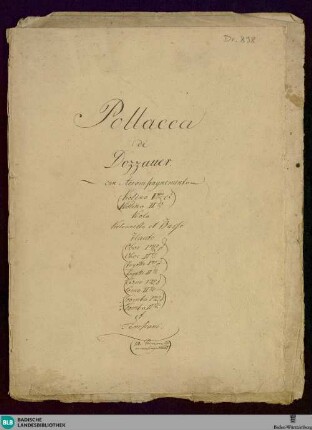 Pollacca
de
Dozzauer
con Accompagnemento
Violino Imo
Violino IIdo
Viola
Violoncello et Basso
Flauto
Oboe Imo
Oboe IIdo
Fagotto Imo
Fagotto IIdo
Corno Imo
Corno IIdo
et
Timpano
BLB BADISCHE
LANDESBIBLIOTHEK
Baden-Württemberg